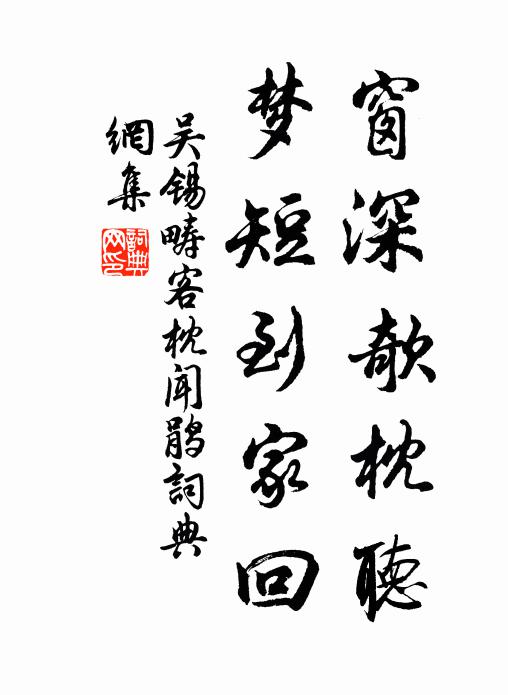 窗深欹枕聽
梦短到家回
吴锡畴客枕闻鹃詞典
網集
詞典
网印